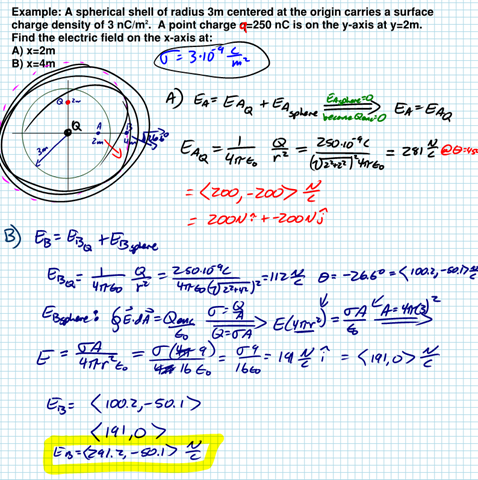 Example: A spherical shell of radius 3m centered at the origin carries a surface
charge density of 3 nC/m². A point charge q=250 nC is on the y-axis at y=2m.
Find the electric field on the x-axis at:
A) x=2m
B) x=4m
σ = 3·10⁻⁹ C/m²
Q 2m
Q
A
2m
B
4m
3m
A) E_A = E_AQ + E_A sphere
E_A sphere = 0
because Q enc = 0
E_A = E_AQ
E_AQ = 1/4πε₀ Q/r² = 250·10⁻⁹C/(√2²+2²)²4πε₀ = 281 N/C
= <200, -200> N/C
= 200N î + -200N ĵ
B) E_B = E_BQ + E_B sphere
E_BQ = 1/4πε₀ Q/r² = 250·10⁻⁹C/4πε₀(√2²+4²)² = 112 N/C θ = -26.6° = <100.2, -50.1> N/C
E_B sphere: ∮E·dA = Q enc/ε₀ σ = Q/A Q = σA E(4πr²) = σA/ε₀ A = 4π(3)²
E = σA/4πr²ε₀ = σ(4π 9)/4π 16 ε₀ = σ9/16ε₀ = 191 N/C î = <191, 0> N/C
E_B = <100.2, -50.1>
<191, 0>
E_B = <291.2, -50.1> N/C